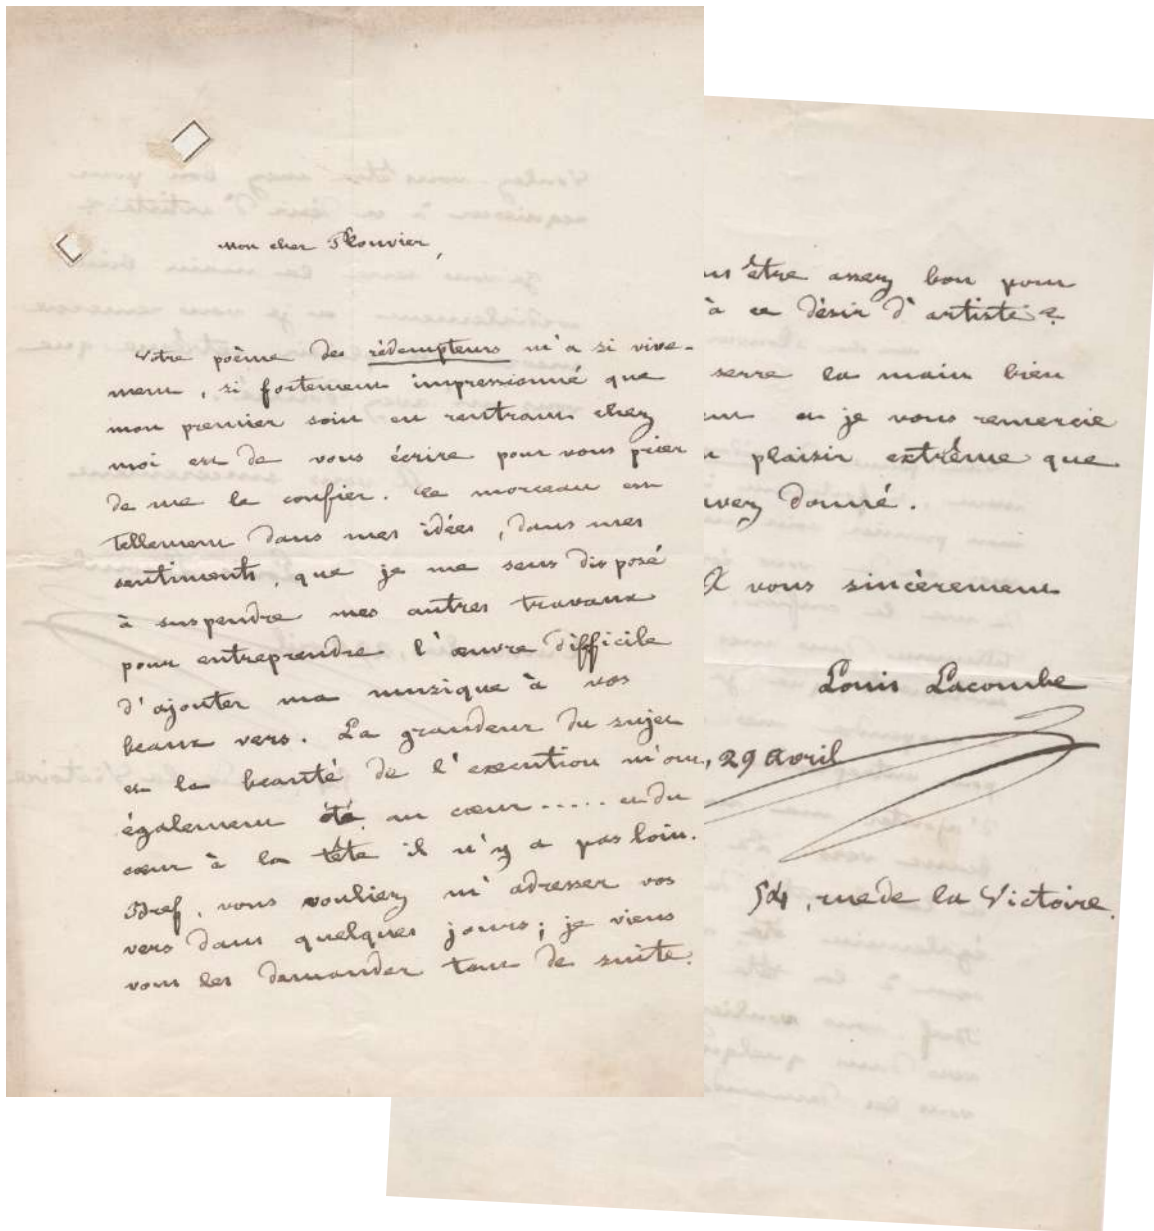 Mon cher Plouvier,
Votre poème des rédempteurs m'a si vive-
ment, si fortement impressionné que
mon premier soin en rentrant chez
moi est de vous écrire pour vous prier
de me le confier. Ce morceau est
tellement dans mes idées, dans mes
sentiments, que je me sens disposé
à suspendre mes autres travaux
pour entreprendre l'œuvre difficile
d'ajouter ma musique à vos
beaux vers. La grandeur du sujet
et la beauté de l'exécution m'ont
également été au cœur..... et du
cœur à la tête il n'y a pas loin.
Bref, vous vouliez m'adresser vos
vers dans quelques jours; je viens
vous les demander tout de suite.
être assez bon pour
à ce désir d'artiste?
serre la main bien
et je vous remercie
plaisir extrême que
avez donné.
A vous sincèrement
Louis Lacombe
, 29 avril
54, rue de la Victoire.